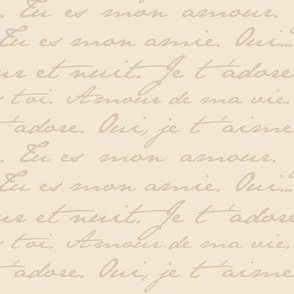 . Tu es mon amour.
Tu es mon amie. Oui...
ur et nuit. Je t'adore.
s toi. Amour de ma vie.
t'adore. Oui, je t'aime
. Tu es mon amour.
Tu es mon amie. Oui...
ur et nuit. Je t'adore.
s toi. Amour de ma vie.
t'adore. Oui, je t'aime